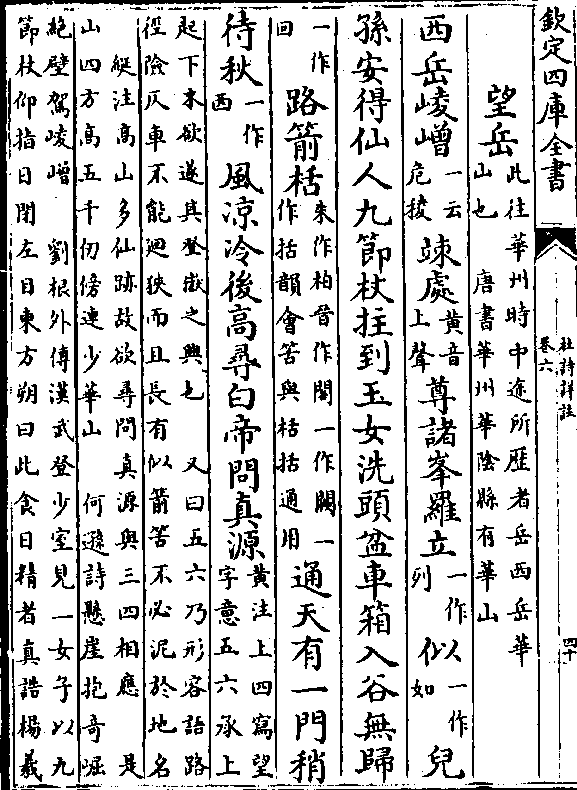 欽定四庫全書
杜詩詳註
卷六
四十
望岳此往華州時中途所歷者岳西岳華
山也 唐書華州華陰縣有華山
西岳崚嶒一云危稜竦處黃音上聲尊諸峯羅立一作列似一作如兒
孫安得仙人九節杖拄到玉女洗頭盆車箱入谷無歸
一作回路箭栝朱作柏晉作閣一作闕一作括韻會筈與栝括通用通天有一門稍
待秋一作西風涼冷後高尋白帝問真源黃注上四寫望字意五六承上
起下末欲遂其登嶽之興也 又曰五六乃形容語路
徑險仄車不能迴狹而且長有似箭筈不必泥於地名
縦注高山多仙跡故欲尋問真源與三四相應 是
山四方高五千仞傍連少華山 何遜詩懸崖抱奇崛
絶壁駕崚嶒 劉根外傳漢武登少室見一女子以九
節杖仰指日閉左目東方朔曰此食日精者真誥楊羲